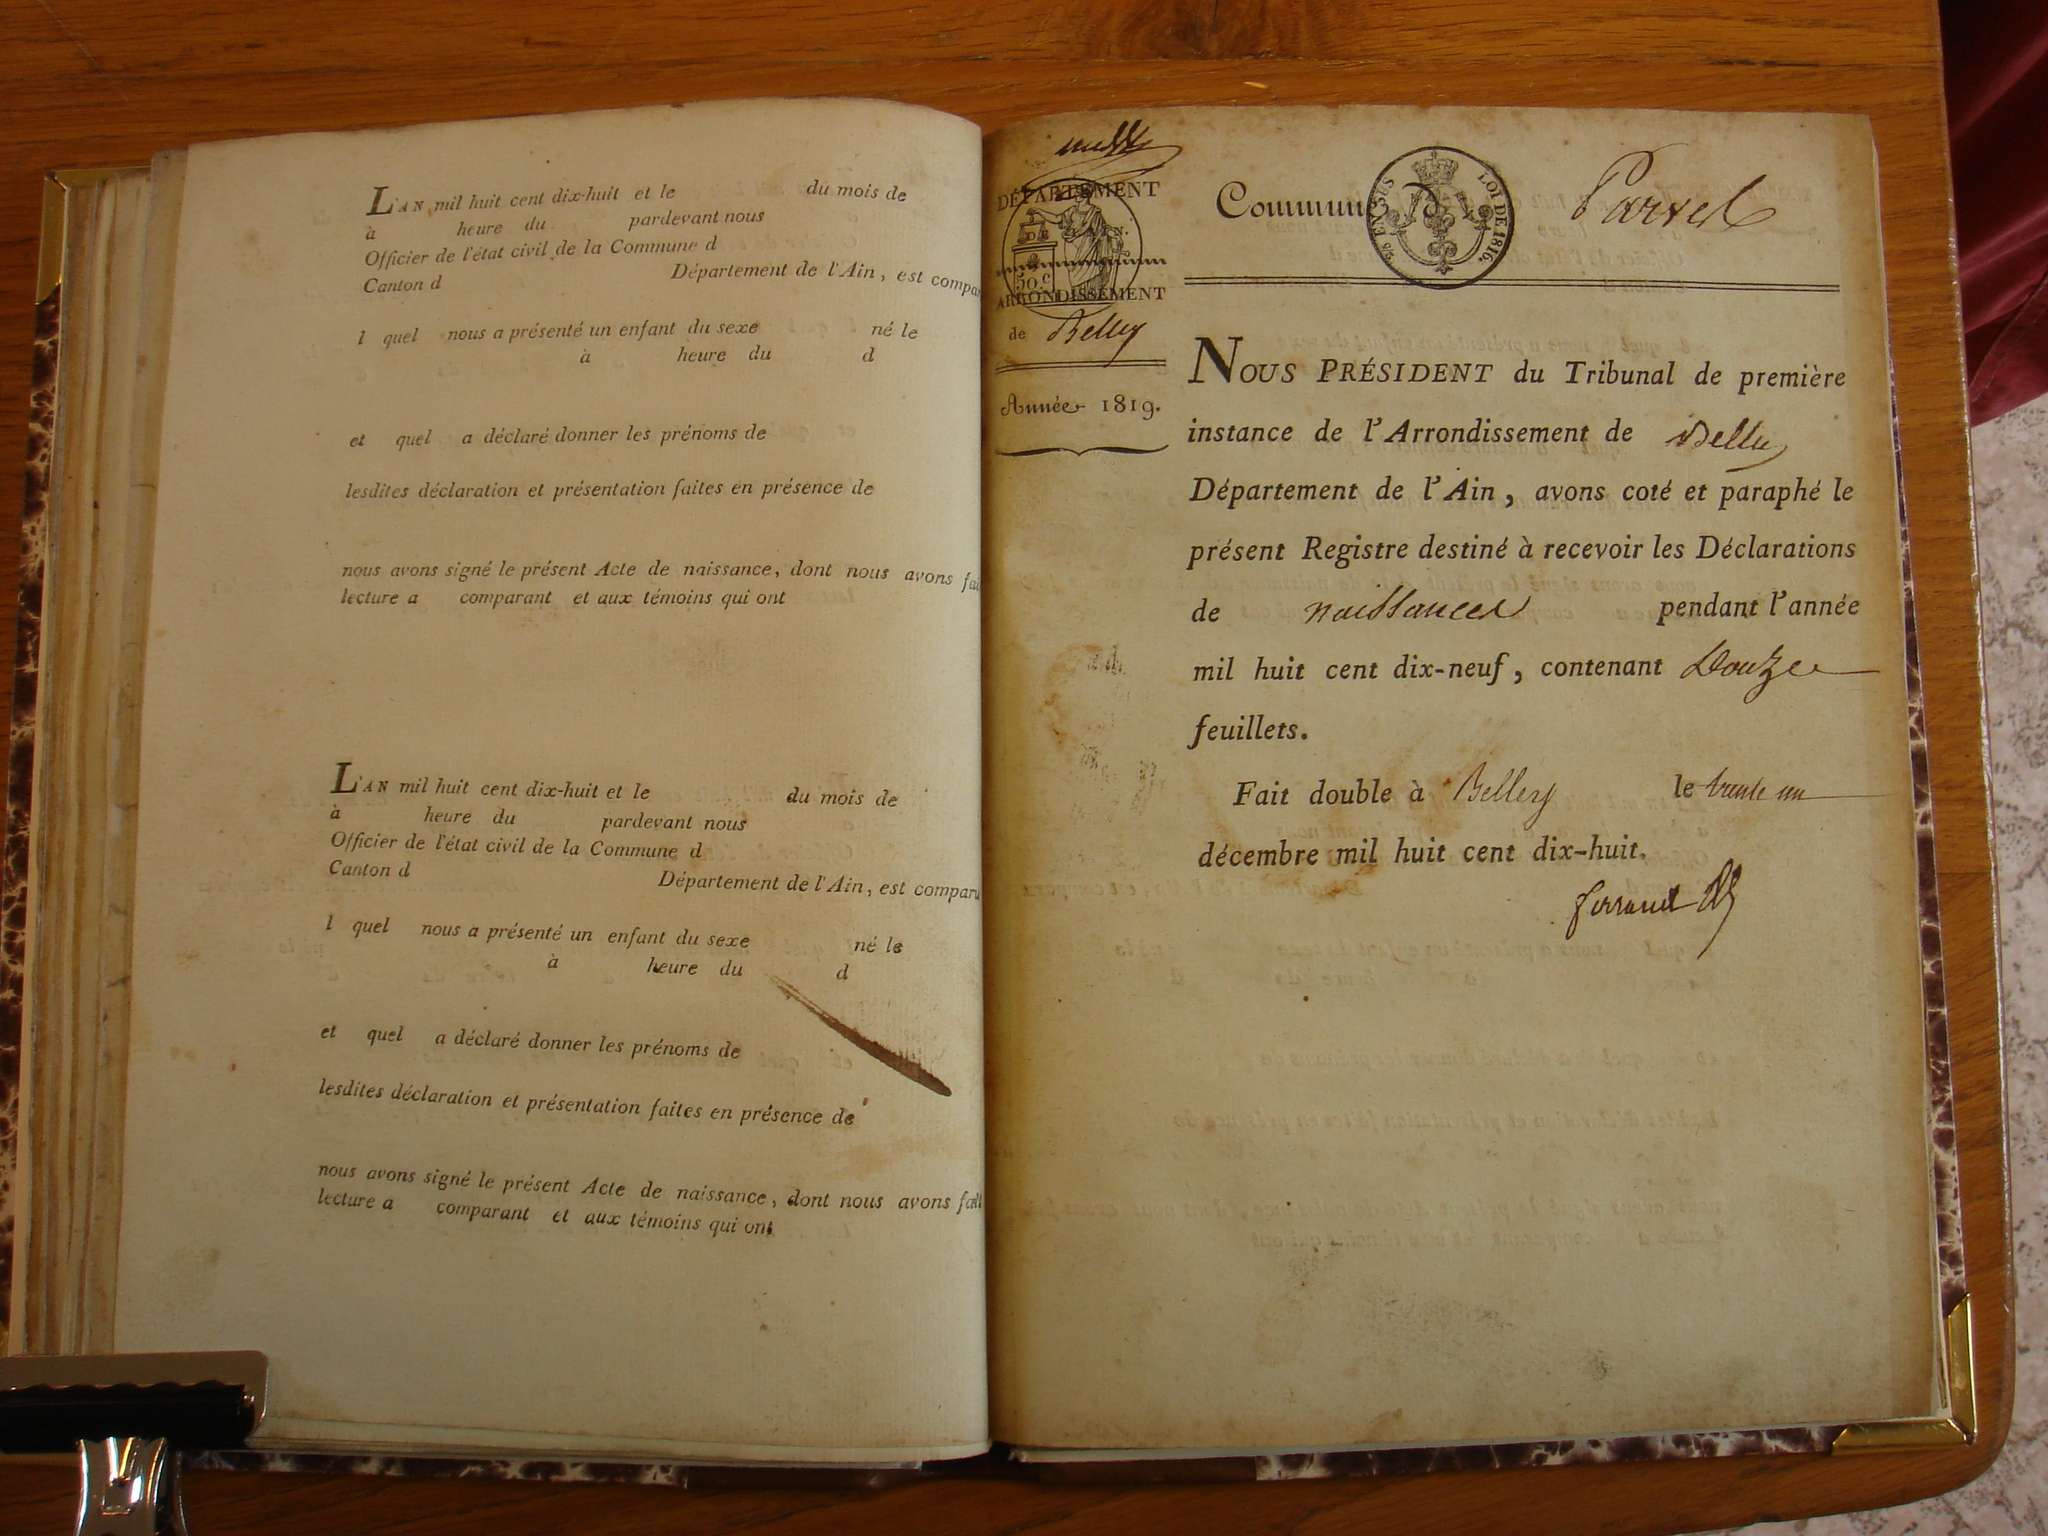 L'AN mil huit cent dix-huit et le du mois de
à heure du pardevant nous
Officier de l'état civil de la Commune d
Canton d Département de l'Ain, est compar
l quel nous a présenté un enfant du sexe né le
à heure du d
et quel a déclaré donner les prénoms de
lesdites déclaration et présentation faites en présence de
nous avons signé le présent Acte de naissance, dont nous avons fai
lecture a comparant et aux témoins qui ont
L'AN mil huit cent dix-huit et le du mois de
à heure du pardevant nous
Officier de l'état civil de la Commune d
Canton d Département de l'Ain, est comparu
l quel nous a présenté un enfant du sexe né le
à heure du d
et quel a déclaré donner les prénoms de
lesdites déclaration et présentation faites en présence de
nous avons signé le présent Acte de naissance, dont nous avons fait
lecture a comparant et aux témoins qui ont
DÉPARTEMENT
DE
50 c
ARRONDISSEMENT
de Belley
Année 1819.
Commune d Parves
LOI DE 1816.
NOUS PRÉSIDENT du Tribunal de première
instance de l'Arrondissement de Belley
Département de l'Ain, avons coté et paraphé le
présent Registre destiné à recevoir les Déclarations
de naissances pendant l'année
mil huit cent dix-neuf, contenant Douze
feuillets.
Fait double à Belley le trente un
décembre mil huit cent dix-huit.
ferrand